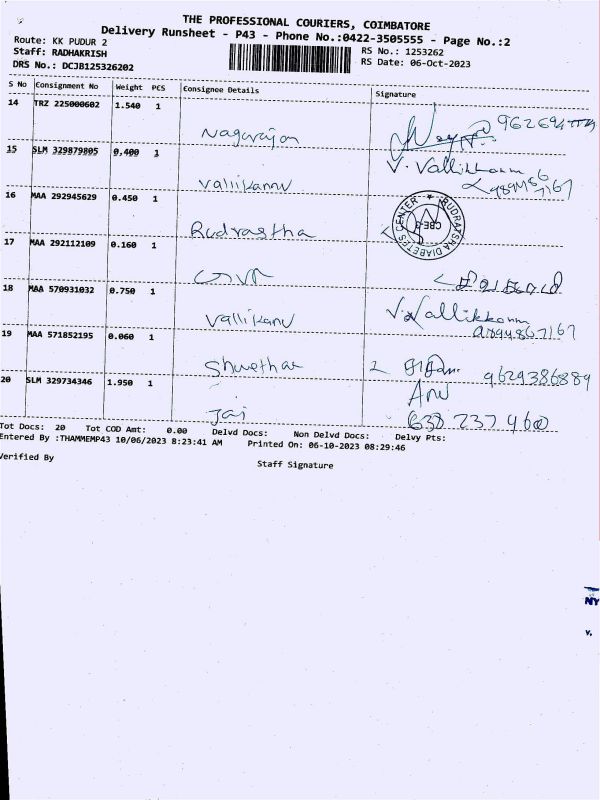 THE PROFESSIONAL COURIERS, COIMBATORE
Delivery Runsheet - P43 - Phone No.:0422-3505555 - Page No.:2
Route: KK PUDUR 2
RS No.: 1253262
Staff: RADHAKRISH
RS Date: 06-Oct-2023
DRS No.: DCJB125326202
S No Consignment No Weight PCS Consignee Details Signature
14 TRZ 225000602 1.540 1
Nagarajan
15 SLM 329879805 0.400 1
V. Vallikkannu
Vallikannu
16 MAA 292945629 0.450 1
RUDRAKSHA DIABETES CENTER
CBE-3
Rudrastha
17 MAA 292112109 0.160 1
18 MAA 570931032 0.750 1
V. Vallikkannu
Vallikanu
19 MAA 571852195 0.060 1
Shwetha
9629386889
20 SLM 329734346 1.950 1
Jai
Tot Docs: 20 Tot COD Amt: 0.00 Delvd Docs: Non Delvd Docs: Delvy Pts:
Entered By :THAMMEMP43 10/06/2023 8:23:41 AM Printed On: 06-10-2023 08:29:46
Verified By
Staff Signature
NY
v.